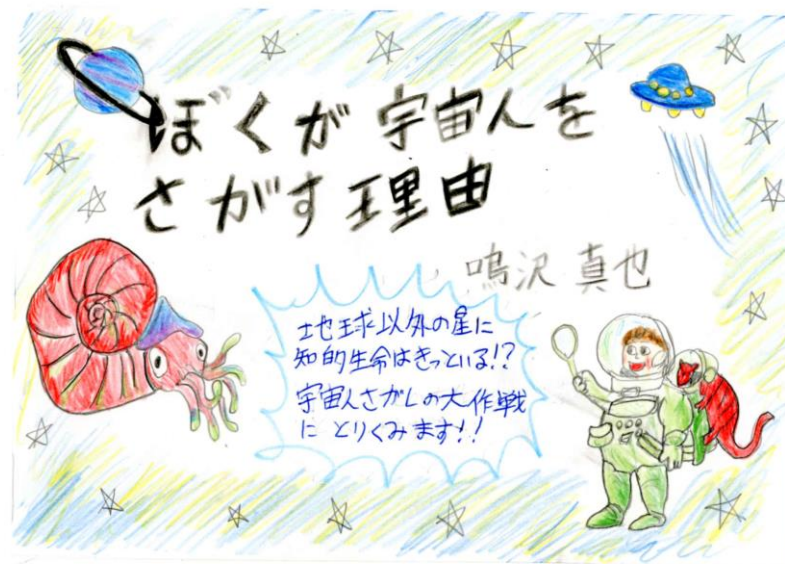 ぼくが宇宙人を
さがす理由
鳴沢 真也
地球以外の星に
知的生命はきっといる!?
宇宙人さがしの大作戦
に とりくみます!!